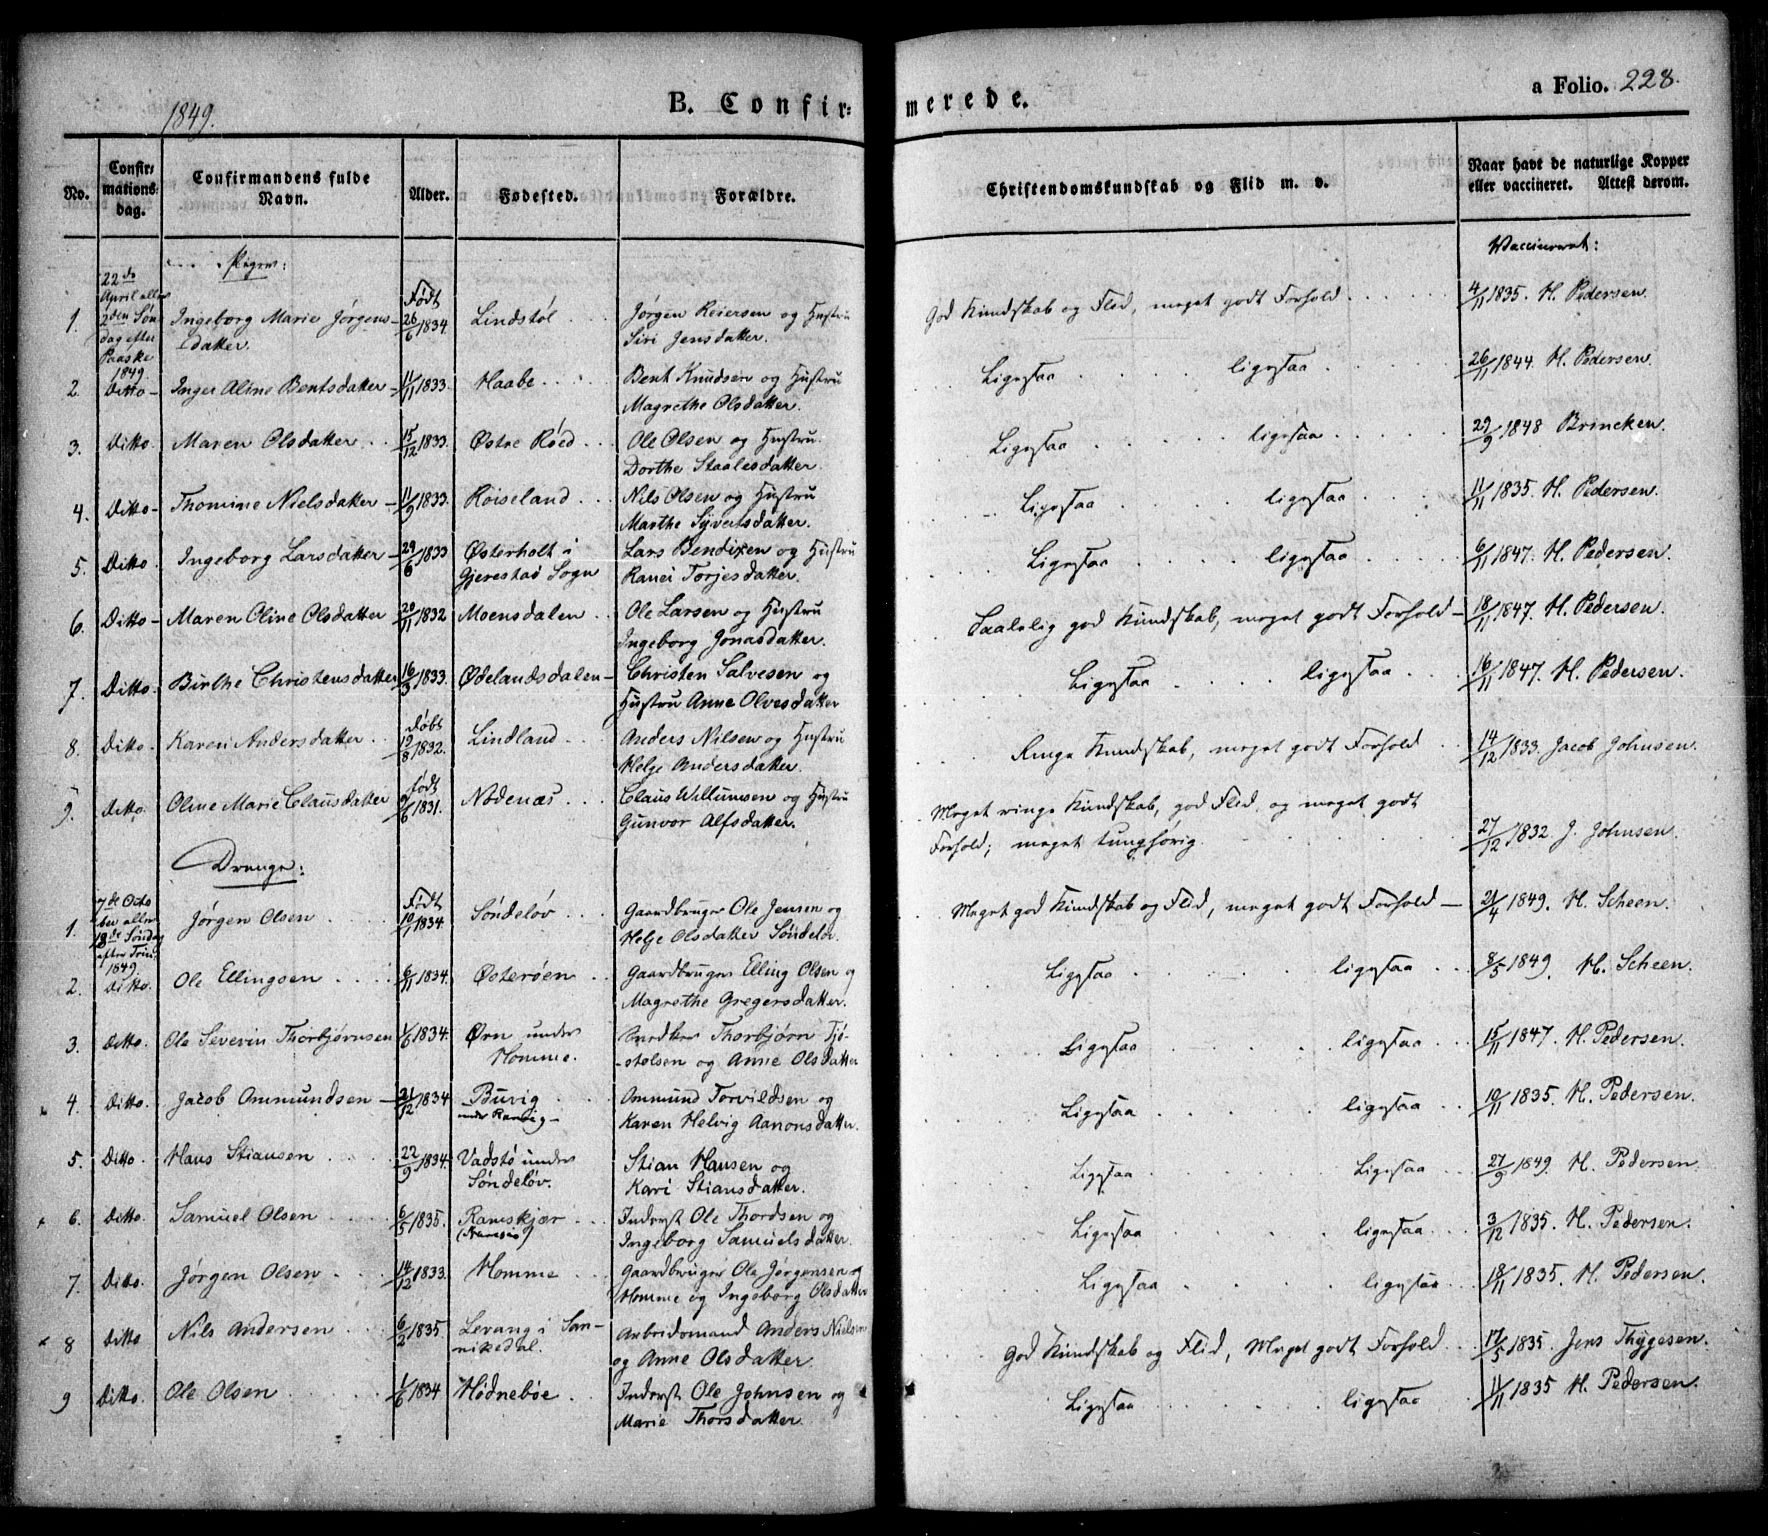 1849.
B. Confir=
merede.
a Folio. 228.
No.
Confir=
mations=
dag.
Confirmandens fulde
Navn.
Alder.
Fødested.
Forældre.
Christendomskundskab og Flid m. v.
Naar havt de naturlige Kopper
eller vaccineret. Attest derom.
Piger:
Vaccineret:
1. 22de April eller 2den Søndag efter Paaske 1849 Ingeborg Marie Jørgens- Født 26/6 1834. Lindstøl Jørgen Reiersen og Hustru God Kundskab og Flid, meget godt Forhold 4/11 1835. H. Pedersen.
datter. Siri Jensdatter.
2. Ditto Inger Aline Bentsdatter 11/11 1833. Haabe Bent Knudsen og Hustru Ligesaa ligesaa 26/11 1844 H. Pedersen.
Magrethe Olsdatter.
3. Ditto. Maren Olsdatter 15/12 1833. Østre Røed Ole Olsen og Hustru Ligesaa ligesaa 29/9 1848 Brincken.
Dorthe Staalesdatter
4. Ditto Thomine Nielsdatter 11/9 1833. Røiseland Nils Olsen og Hustru Ligesaa ligesaa 11/11 1835. H. Pedersen.
Marthe Syvertsdatter.
5. Ditto. Ingeborg Larsdatter 29/6 1833 Østerholt i Lars Bendixen og Hustru Ligesaa ligesaa 6/11 1847. H. Pedersen.
Gjerestad Sogn Ranei Torjesdatter.
6. Ditto Maren Oline Olsdatter 20/11 1832 Moensdalen Ole Larsen og Hustru Taalelig god Kundskab, meget godt Forhold 18/11 1847. H. Pedersen.
Ingeborg Jonasdatter.
7. Ditto. Birthe Christensdatter 16/3 1833. Ødelandsdalen Christen Salvesen og Ligesaa ligesaa 16/11 1847. H. Pedersen.
Hustru Anne Olvesdatter
8. Ditto. Karen Andersdatter Døbt 19/8 1832. Lindland Anders Nilsen og Hustru Ringe Kundskab, meget godt Forhold 14/12 1833. Jacob Johnsen.
Helge Andersdatter.
9. Ditto. Oline Marie Clausdatter født /6 1831. Nødenæs Claus Willumsen og Hustru Meget ringe Kundskab, god Flid, og meget godt
Gunvor Alfsdatter. Forhold; meget tunghørig. 27/12 1832. J. Johnsen.
Drenge:
1. 7de October eller 18de Søndag efter Trin. 1849. Jørgen Olsen Født 10/1 1834. Søndeløv Gaardbruger Ole Jensen og Meget god Kundskab og Flid, meget godt Forhold 21/4 1849. H. Scheen.
Helge Olsdatter Søndeløv.
2. Ditto. Ole Ellingsen 6/11 1834. Østerøen Gaardbruger Elling Olsen og Ligesaa ligesaa 8/5 1849. H. Scheen.
Magrethe Gregersdatter.
3. Ditto. Ole Severin Thorbjørnsen 1/6 1834. Ørn under Thorbjørn Tjø- Ligesaa ligesaa 15/11 1847. H. Pedersen.
Homme. -stolsen og Anne Olsdatter
4. Ditto. Jacob Ommundsen 21/12 1834 Buvig Ommund Torvildsen og Ligesaa ligesaa 10/11 1835. H. Pedersen.
under Ranvig Karen Helvig Aanonsdatter.
5. Ditto. Hans Stiansen 22/9 1834. Vadstø under Stian Hansen og Ligesaa Ligesaa 27/9 1849. H. Pedersen.
Søndeløv. Kari Stiansdatter.
6. Ditto. Samuel Olsen 6/5 1835. Ramskjær Inderst Ole Thordsen og Ligesaa ligesaa 3/12 1835. H. Pedersen.
Ingeborg Samuelsdatter.
7. Ditto. Jørgen Olsen 14/12 1833. Homme Gaardbruger Ole Jørgensen Ligesaa ligesaa 18/11 1835. H. Pedersen.
Homme og Ingeborg Olsdatter
8 Ditto Nils Andersen 6/2 1835 Levang i San- Arbeidsmand Anders Nielsen God Kundskab og Flid, Meget godt Forhold 17/5 1835. Jens Thygesen.
nikedal. og Anne Olsdatter.
9 Ditto. Ole Olsen 1/6 1834 Hødnebøe Inderst Ole Johnsen og Ligesaa ligesaa 11/11 1835 H. Pedersen.
Marie Thorsdatter.